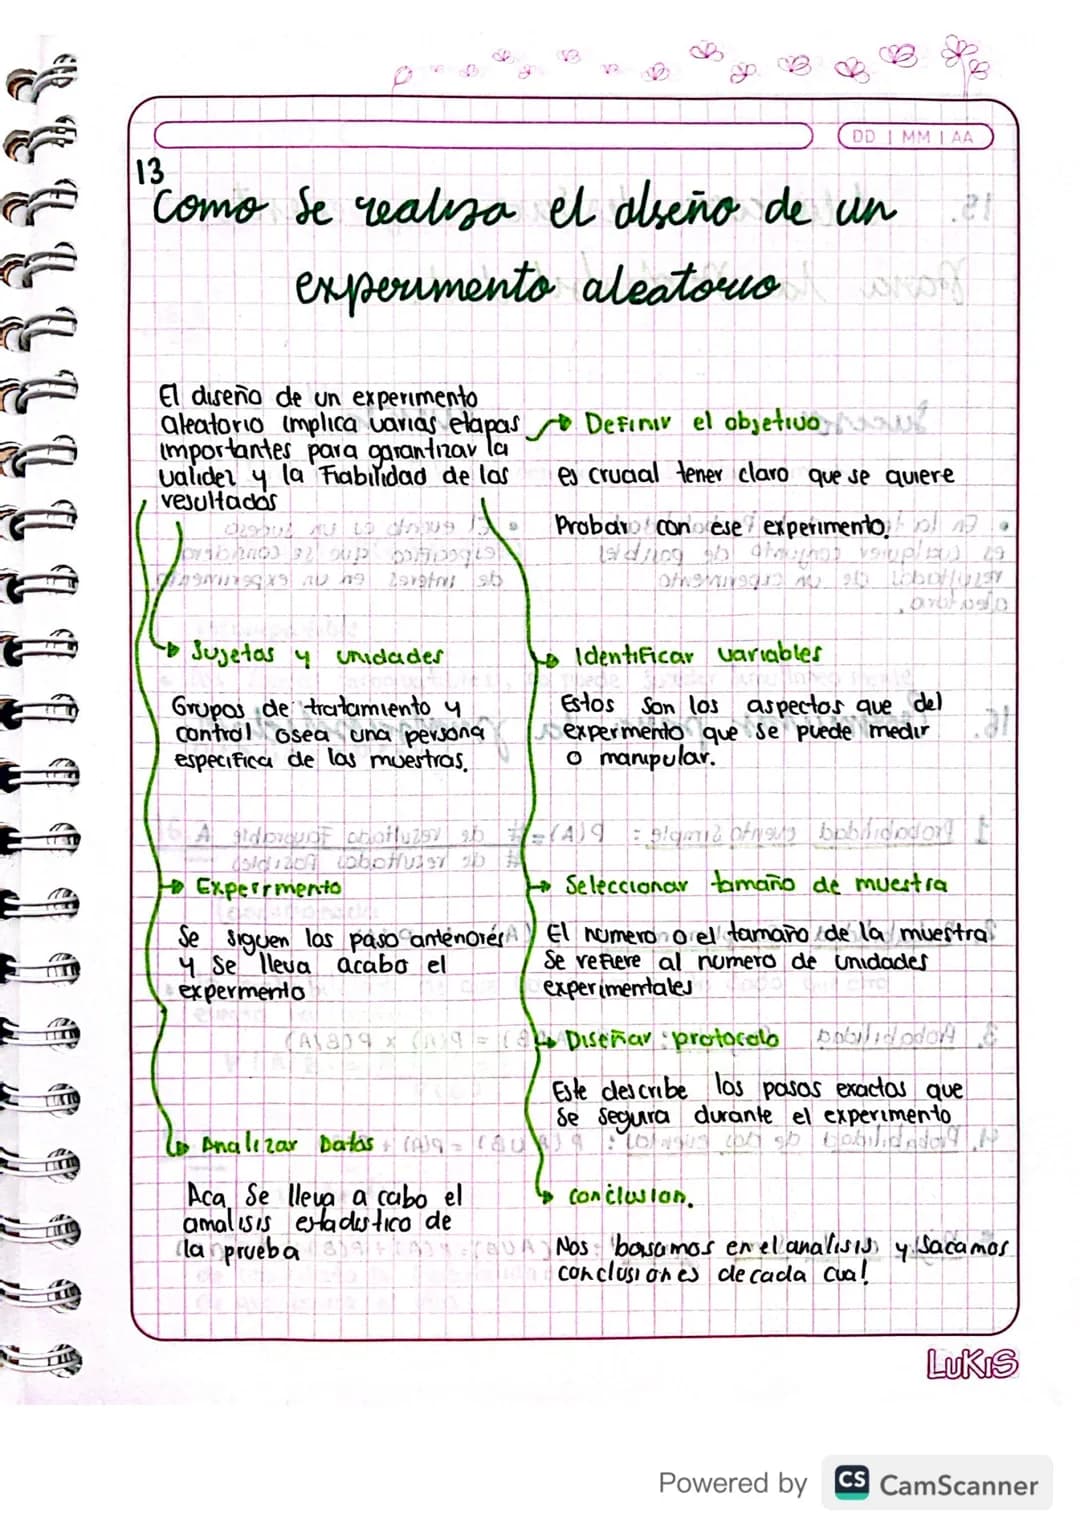 DD | MM | AA
13
Como Se realiza el diseño de un
experimento aleatorio
El diseño de un experimento
aleatorio implica varias etapas
importantes para garantizar la
validez y la Fiabilidad de los
resultados
Definir el objetivo
es crucial tener claro que se quiere
Probar con ese experimento.
Sujetos y unidades
Grupos de tratamiento y
control osea una persona
especifica de las muestras.
Identificar variables
Estos son los aspectos que del
expermento que se puede medir
o manipular.
Experrmento
Se siguen los paso anteriores
y se lleva acabo el
expermento
Seleccionar tamaño de muestra
El numero o el tamaño de la muestra
se refiere al numero de unidades
experimentales
Diseñar protocolo
Este describe los pasos exactos que
se segura durante el experimento
Analizar Datos
Aca se lleva a cabo el
amalisis estadistico de
la prueba
conclusion.
Nos basamos en el analisis y sacamos
conclusiones de cada cual
LUKIS
Powered by CS CamScanner